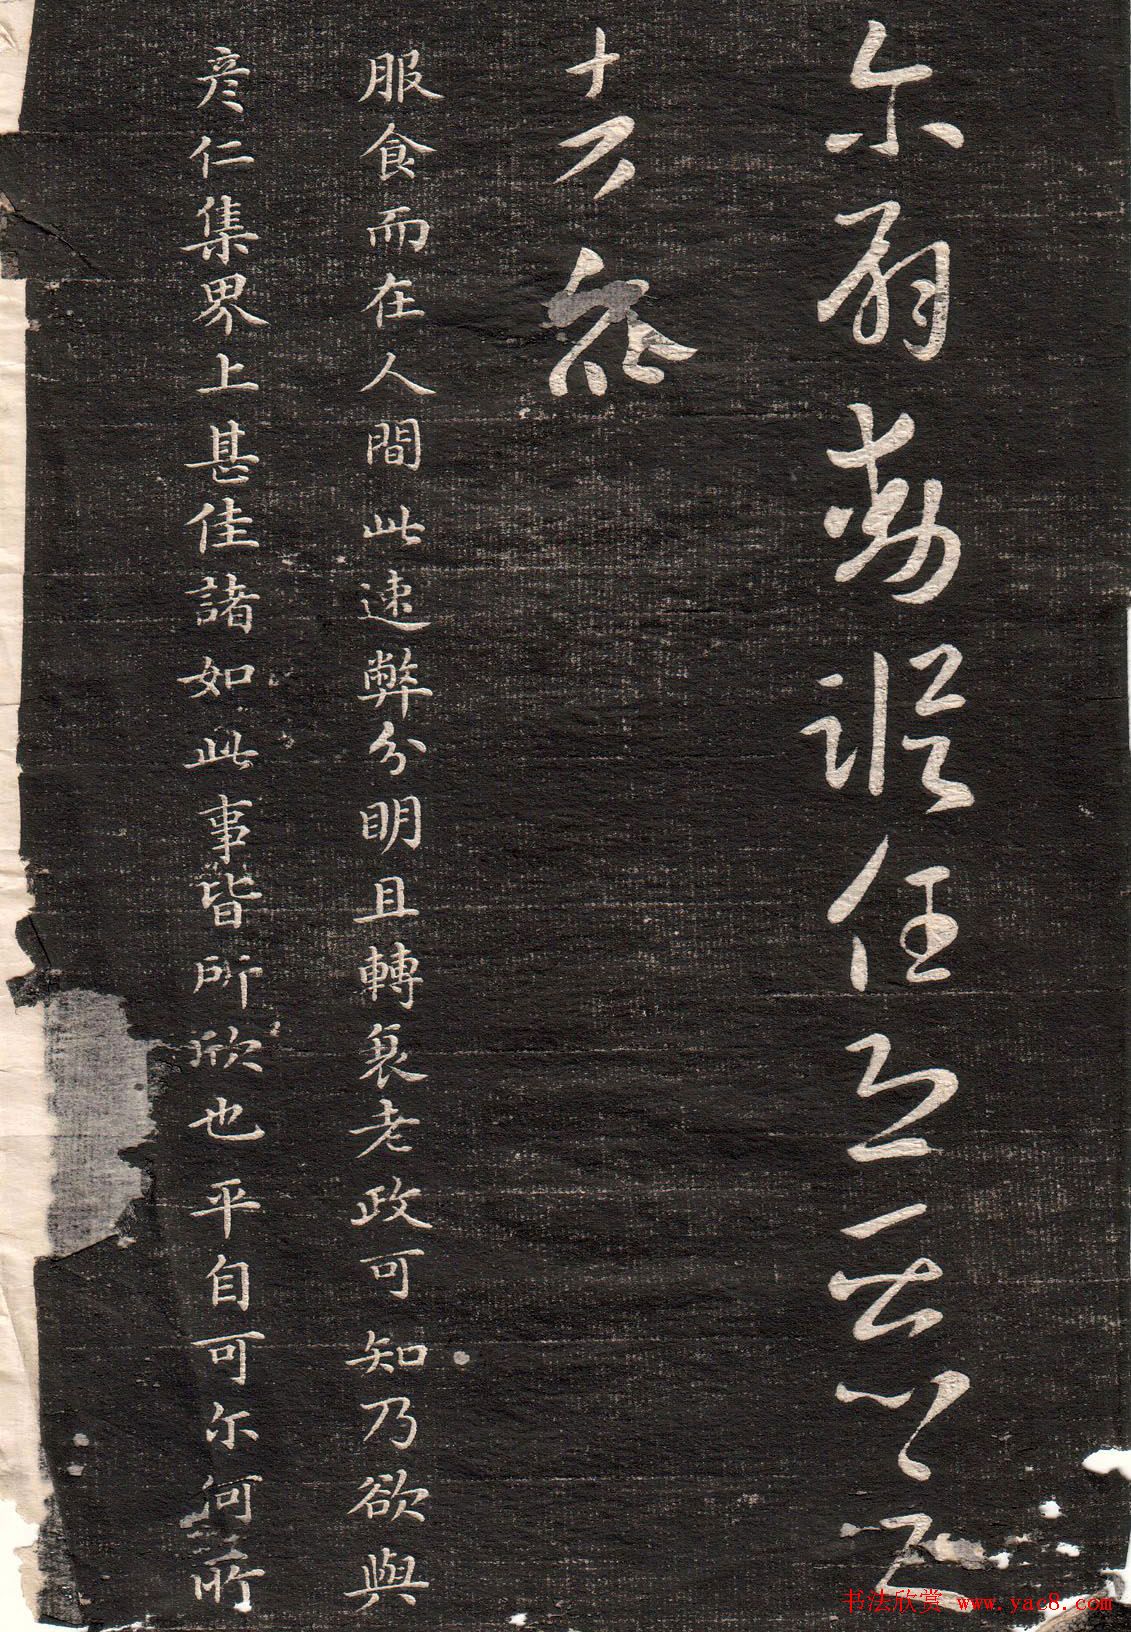 尔任之
十不能
服食而在人間此速弊分明且轉衰老政可知乃欲與
彦仁集界上甚佳諸如此事皆所欣也平自可尔何所
书法欣赏 www.yac8.com